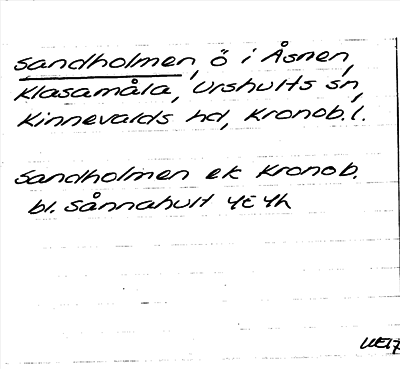 Sandholmen, ö i Åsnen,
Klasamåla, Urshults sn,
Kinnevalds hd, Kronob. l.
Sandholmen ek Kronob.
bl. Sånnahult 4E4h